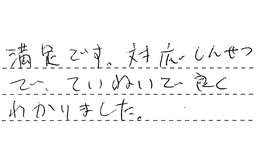 満足です。対応しんせつ
で、ていねいで良く
わかりました。